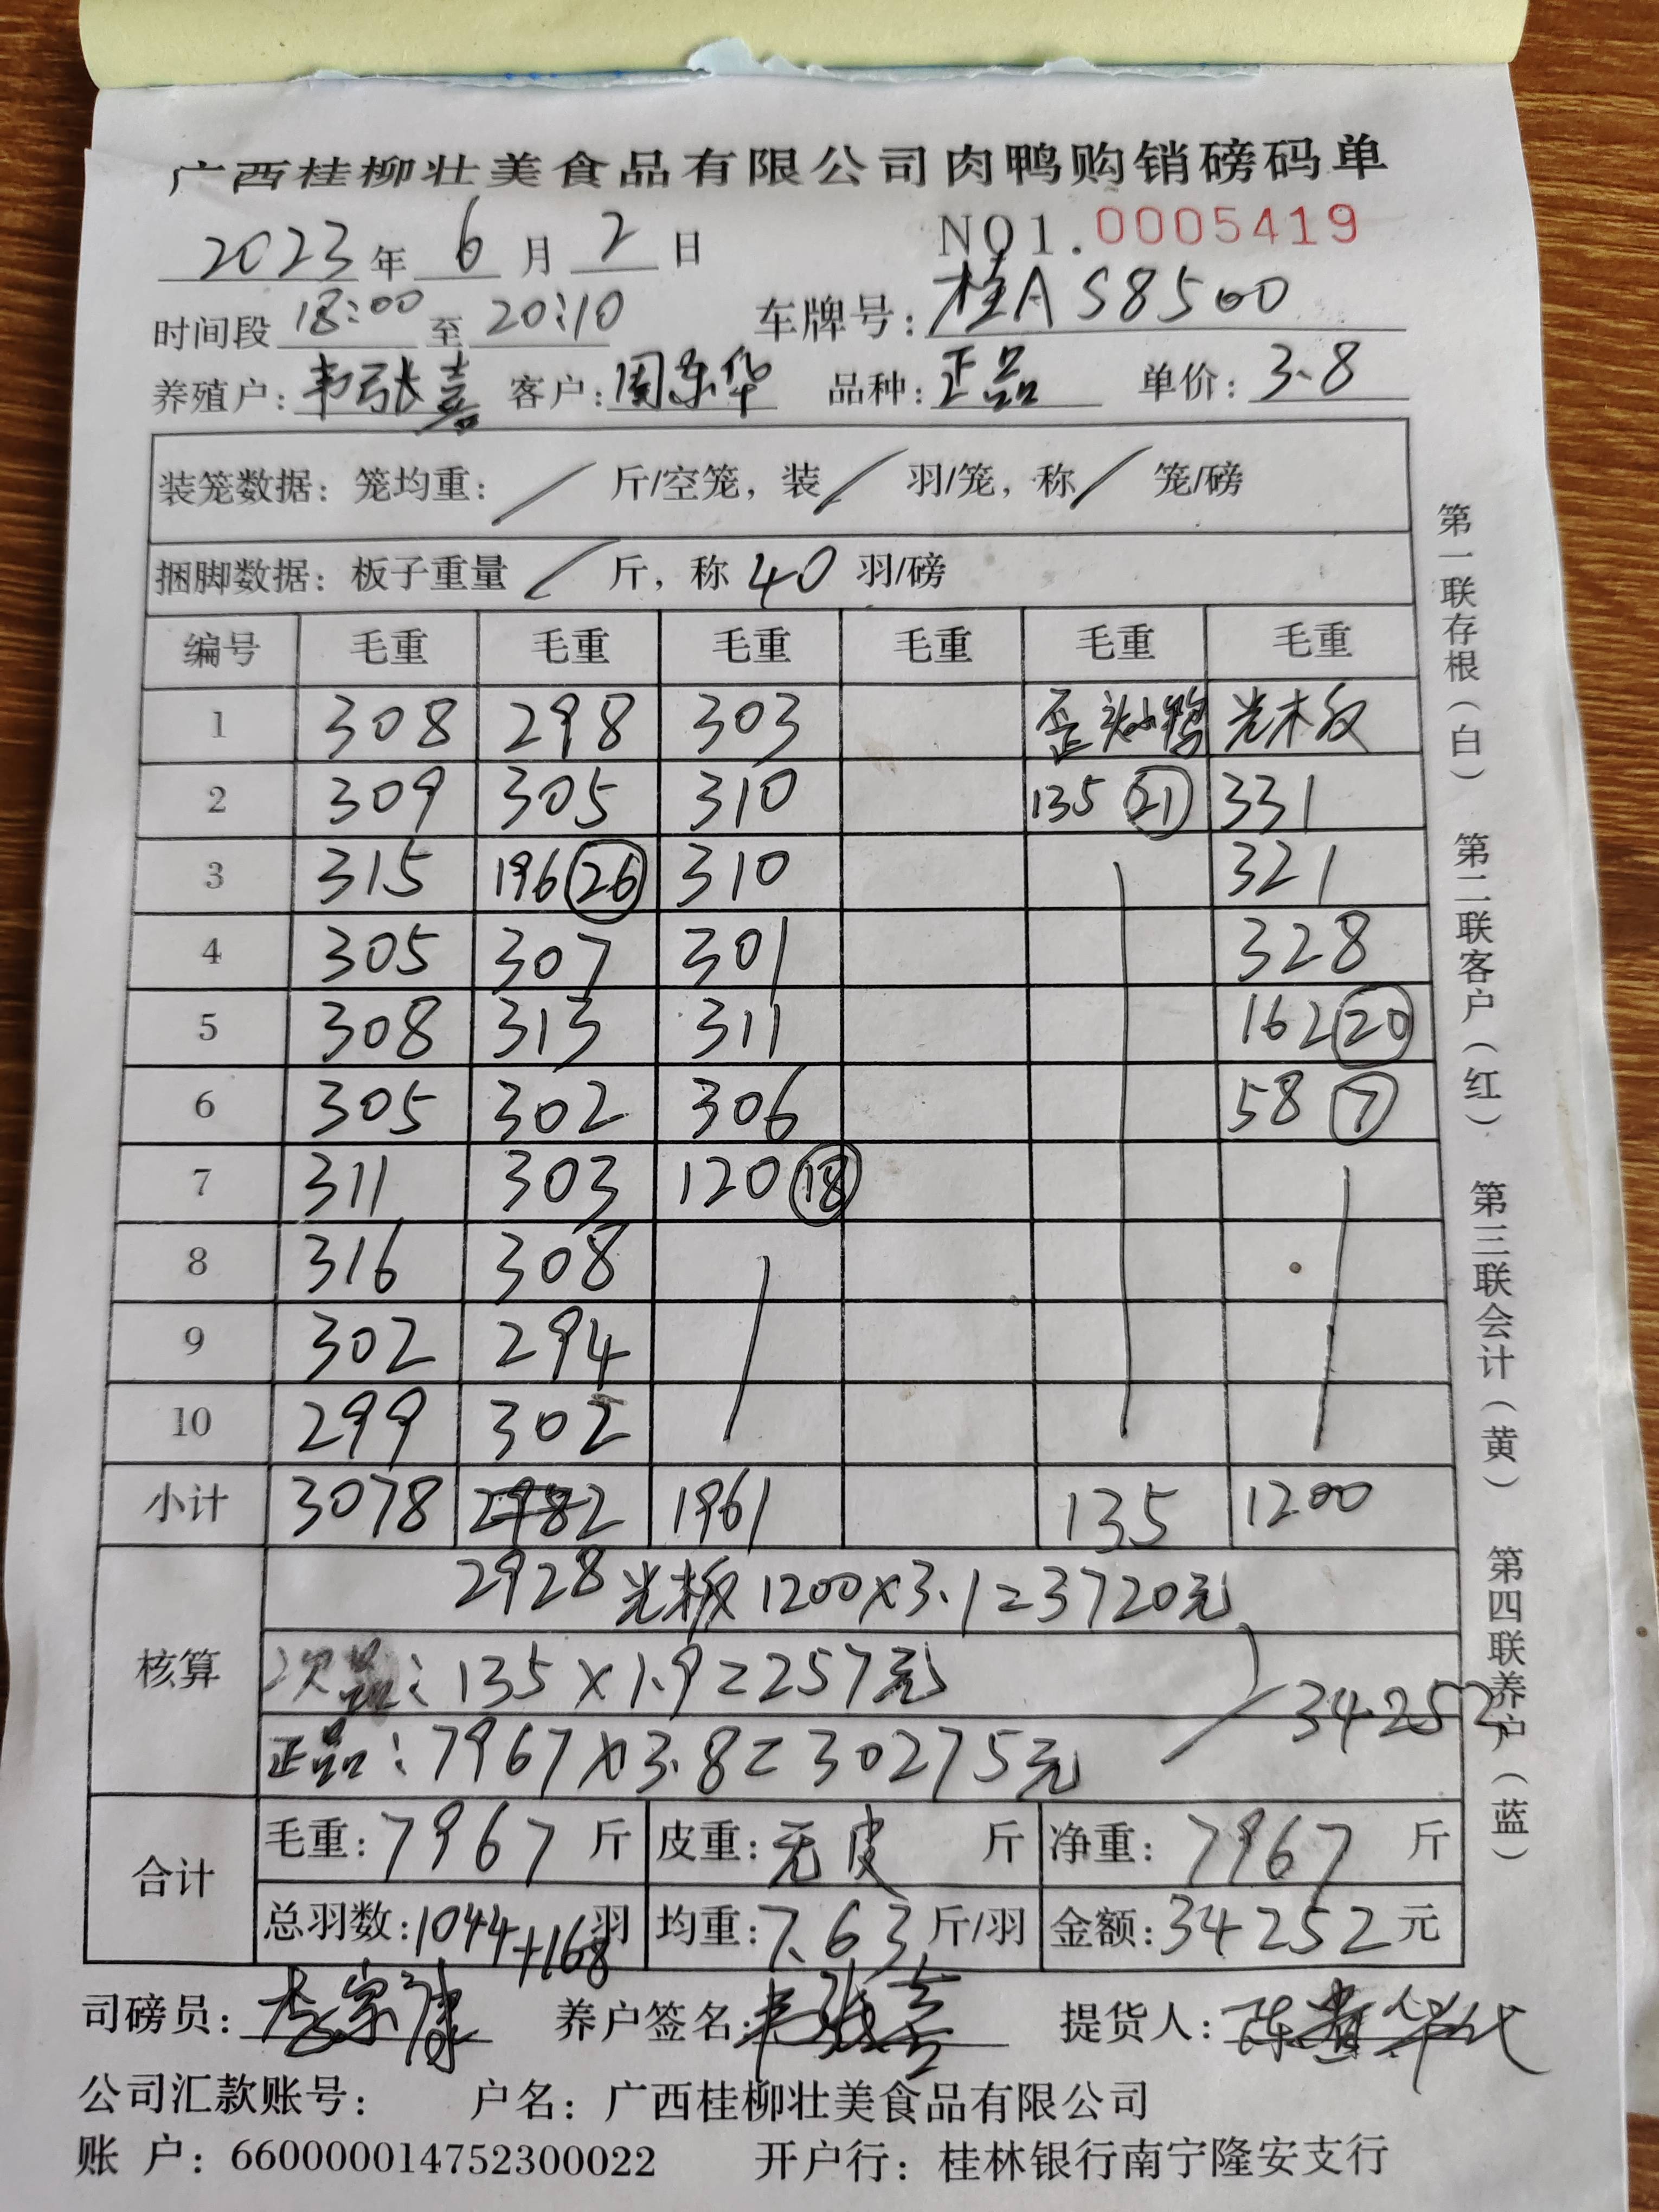 广西桂柳壮美食品有限公司肉鸭购销磅码单
2023年6月2日 NO1.0005419
时间段 18:00 至 20:10 车牌号:桂A S8500
养殖户:韦张喜 客户:周东华 品种:正品 单价:3.8
装笼数据:笼均重: / 斤/空笼,装 / 羽/笼,称 / 笼/磅
捆脚数据:板子重量 / 斤,称 40 羽/磅
编号 毛重 毛重 毛重 毛重 毛重 毛重
1 308 298 303 歪头小鸭 光木板
2 309 305 310 135 (21) 331
3 315 196 (26) 310 321
4 305 307 301 328
5 308 313 311 162 (20)
6 305 302 306 58 (7)
7 311 303 120 (18)
8 316 308
9 302 294
10 299 302
小计 3078 2982 1961 135 1200
核算
2928 光板 1200×3.1=3720元
次品:135×1.9=257元
34252
正品:7967×3.8=30275元
合计
毛重:7967斤 皮重:无皮 斤 净重:7967斤
总羽数:1044+168羽 均重:7.63斤/羽 金额:34252元
司磅员: 养户签名:韦张喜 提货人:陈贵华代
公司汇款账号: 户名:广西桂柳壮美食品有限公司
账 户:660000014752300022 开户行:桂林银行南宁隆安支行
第一联存根(白) 第二联客户(红) 第三联会计(黄) 第四联养户(蓝)